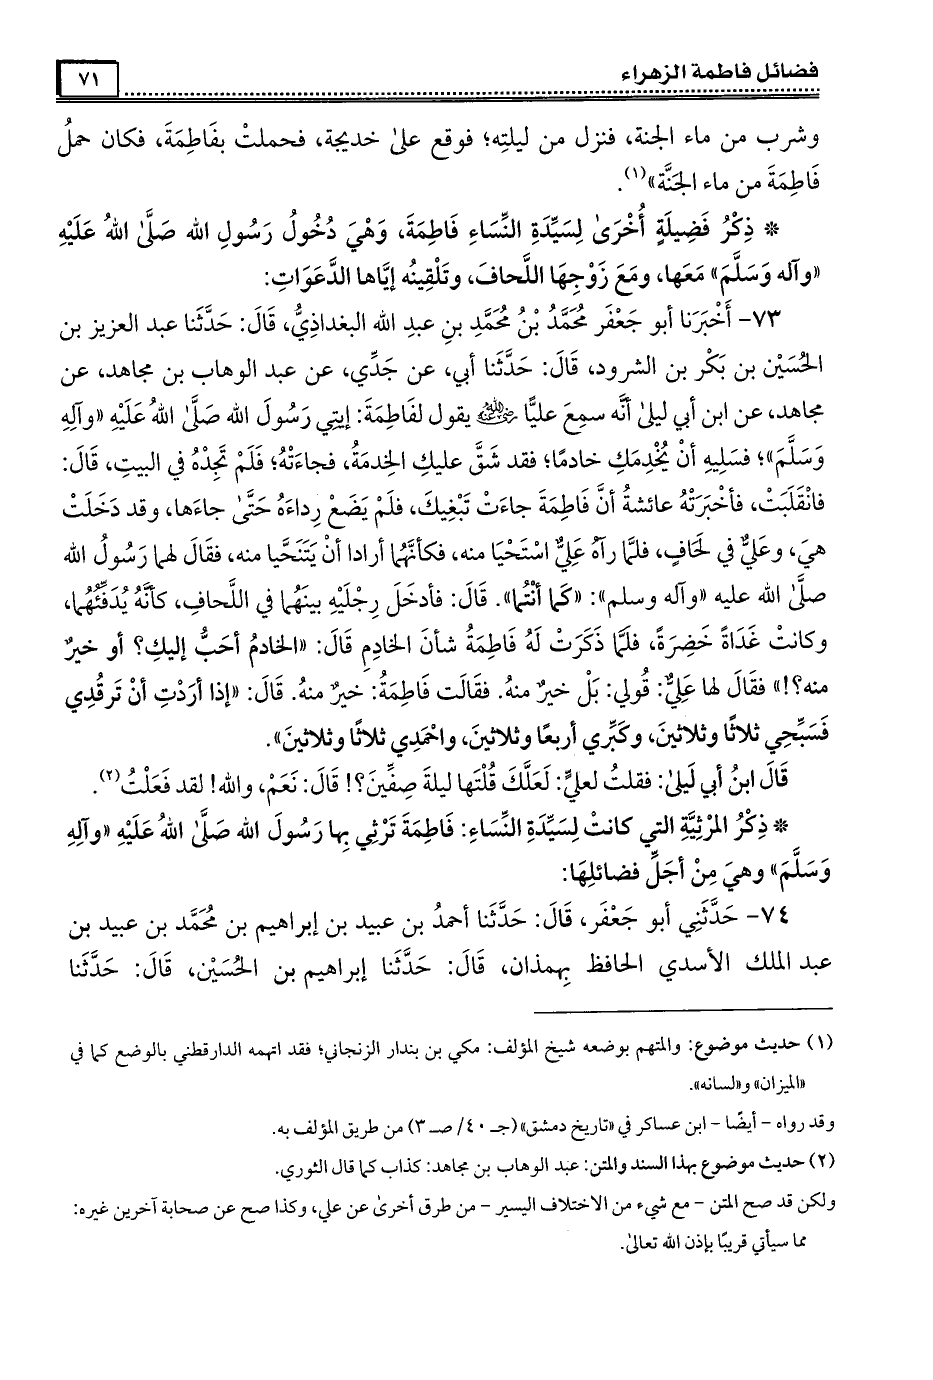 فضائل فاطمة الزهراء
٧١
وشرب من ماء الجنة، فنزل من ليلتِه؛ فوقع علىٰ خديجة، فحملتْ بفَاطِمَةَ، فكان حملُ
فَاطِمَةَ من ماء الجَنَّة»(١).
* ذِكْرُ فَضِيلَةٍ أُخْرَىٰ لِسَيِّدَةِ النِّسَاءِ فَاطِمَةَ، وَهْيَ دُخُولُ رَسُولِ الله صَلَّىٰ اللهُ عَلَيْهِ
«وآله وَسَلَّمَ» مَعَها، ومَعَ زَوْجِهَا اللِّحافَ، وتَلْقِينُه إيَّاها الدَّعَوَاتِ:
٧٣- أَخْبَرَنا أبو جَعْفَر مُحَمَّدُ بْنُ مُحَمَّدِ بنِ عبدِ الله البغداذِيُّ، قَالَ: حَدَّثَنا عبد العزيز بن
الحُسَيْن بن بَكْر بن الشرود، قَالَ: حَدَّثَنا أبي، عن جَدِّي، عن عبد الوهاب بن مجاهد، عن
مجاهد، عن ابن أبي ليلىٰ أنَّه سمِعَ عليًّا ﵁ يقول لفَاطِمَةَ: إيتِي رَسُولَ الله صَلَّىٰ اللهُ عَلَيْهِ «وآلِهِ
وَسَلَّمَ»؛ فسَلِيهِ أنْ يُخْدِمَكِ خادمًا؛ فقد شَقَّ عليكِ الخِدمَةُ، فجاءَتْهُ؛ فلَمْ تَجِدْهُ في البيتِ، قَالَ:
فانْقَلَبَتْ، فأخْبَرَتْهُ عائشةُ أنَّ فَاطِمَةَ جاءَتْ تَبْغِيكَ، فلَمْ يَضَعْ رِداءَهُ حَتَّىٰ جاءَها، وقد دَخَلَتْ
هيَ، وعَلِيٌّ في لِحَافٍ، فلمَّا رآهُ عَلِيٌّ اسْتَحْيَا منه، فكأنَّهُما أرادا أنْ يَتَنَحَّيا منه، فقَالَ لهما رَسُولُ الله
صلَّىٰ الله عليه «وآله وسلم»: «كَما أنْتُما». قَالَ: فأدخَلَ رِجلَيْهِ بينَهُما في اللِّحافِ، كأنَّهُ يُدَفِّئُهُما،
وكانتْ غَدَاةً خَضِرَةً، فلمَّا ذَكَرَتْ لَهُ فَاطِمَةُ شأنَ الخادِمِ قَالَ: «الخادمُ أحَبُّ إليكِ؟ أو خيرٌ
منه؟!» فقَالَ لها عَلِيٌّ: قُولي: بَلْ خيرٌ منهُ. فقَالَت فَاطِمَةُ: خيرٌ منهُ. قَالَ: «إذا أرَدْتِ أنْ تَرقُدِي
فَسَبِّحِي ثلاثًا وثلاثينَ، وكَبِّرِي أربعًا وثلاثينَ، واحْمَدِي ثلاثًا وثلاثينَ».
قَالَ ابنُ أبي لَيلىٰ: فقلتُ لعليٍّ: لَعَلَّكَ قُلْتَها ليلةَ صِفِّينَ؟! قَالَ: نَعَمْ، والله! لقد فَعَلْتُ(٢).
* ذِكْرُ المَرْثِيَّةِ التي كانتْ لِسَيِّدَةِ النِّسَاءِ: فَاطِمَةَ تَرْثِي بِها رَسُولَ الله صَلَّىٰ اللهُ عَلَيْهِ «وآلِهِ
وَسَلَّمَ» وهيَ مِنْ أجَلِّ فضائلِهَا:
٧٤- حَدَّثَنِي أبو جَعْفَر، قَالَ: حَدَّثَنا أحمدُ بن عبيد بن إبراهيم بن مُحَمَّد بن عبيد بن
عبد الملك الأسدي الحافظ بِهمذان، قَالَ: حَدَّثَنا إبراهيم بن الحُسَيْن، قَالَ: حَدَّثَنا
(١) حديث موضوع: والمتهم بوضعه شيخ المؤلف: مكي بن بندار الزنجاني؛ فقد اتهمه الدارقطني بالوضع كما في
«الميزان» و«لسانه».
وقد رواه - أيضًا - ابن عساكر في «تاريخ دمشق» (جـ ٤٠/ صـ ٣) من طريق المؤلف به.
(٢) حديث موضوع بهذا السند والمتن: عبد الوهاب بن مجاهد: كذاب كما قال الثوري.
ولكن قد صح المتن - مع شيء من الاختلاف اليسير - من طرق أخرىٰ عن علي، وكذا صح عن صحابة آخرين غيره:
مما سيأتي قريبًا بإذن الله تعالىٰ.